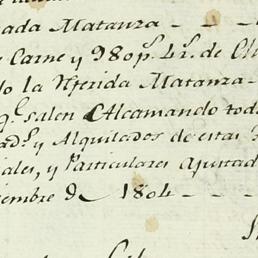 ada Matanza - - -
Carne y 980 p.s 4 r.s de
lo la Referida Matanza -
q.e salen Alcamando tod
ad.s y Alquilados de estas
iales, y Particulares Ajustad
iembre de 1804 - - -